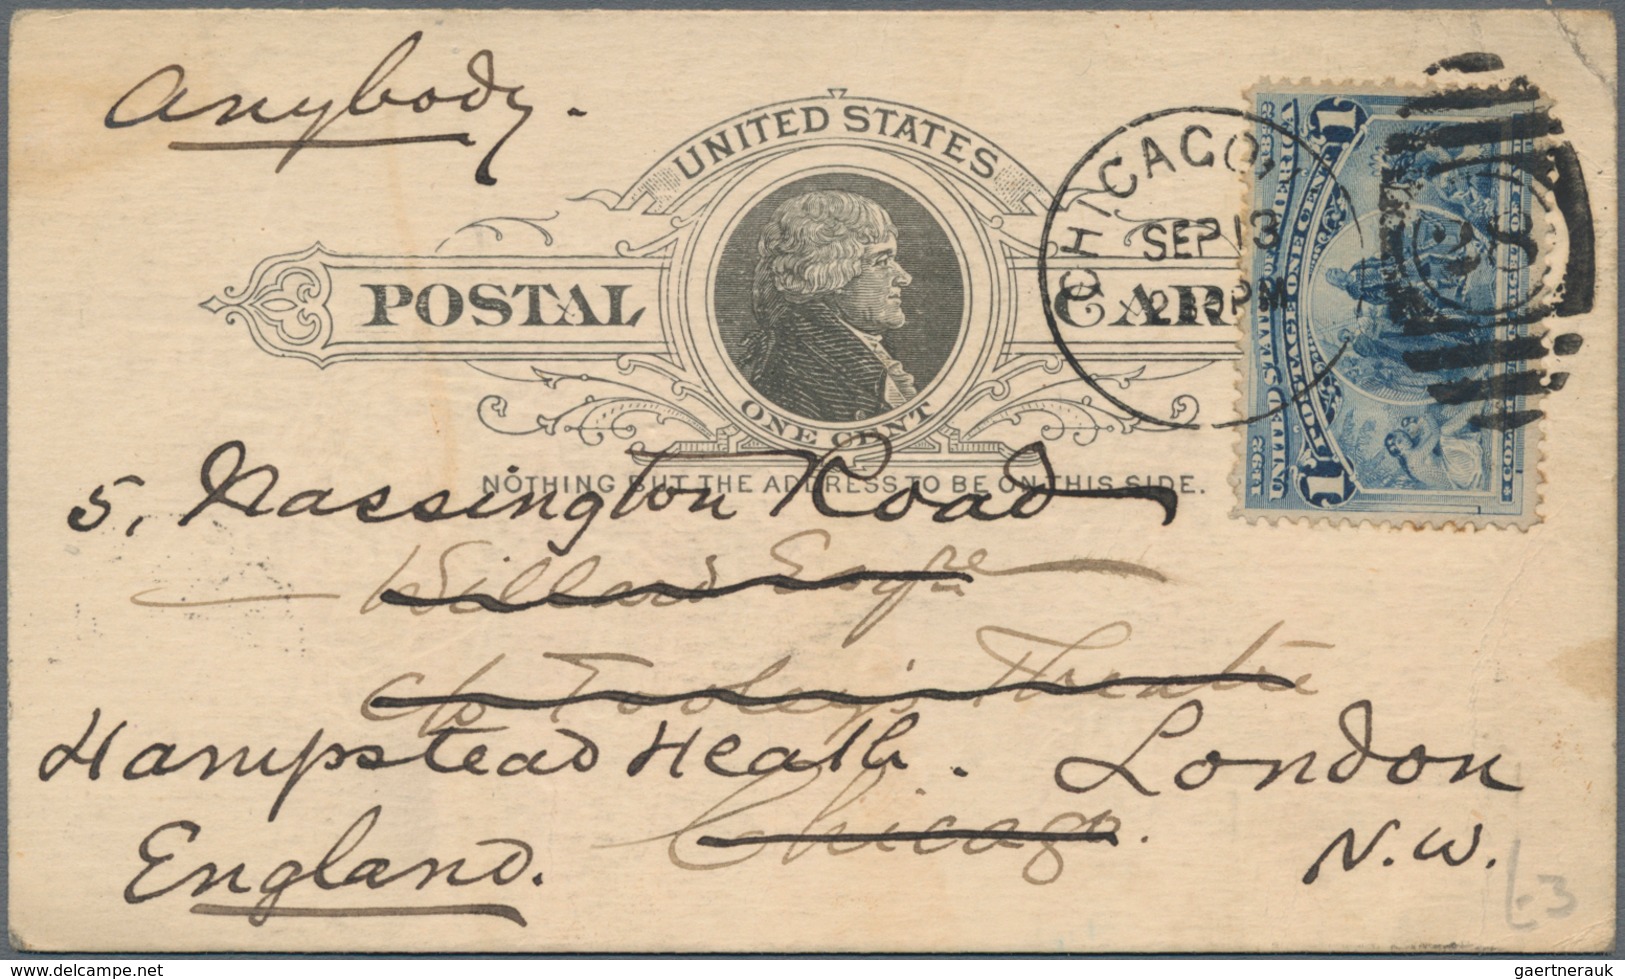 Anybody.
UNITED STATES
POSTAL CAR
ONE CENT
NOTHING BUT THE ADDRESS TO BE ON THIS SIDE.
CHICAGO,
SEP 13
230PM
28
1892
UNITED STATES OF AMERICA
1 POSTAGE ONE CENT 1
5, Nassington Road
Willard Esqre
c/o Hooley's Theatre
Hampstead Heath. London
Chicago.
England. N.W.
£3
gaertnerauk
www.delcampe.net